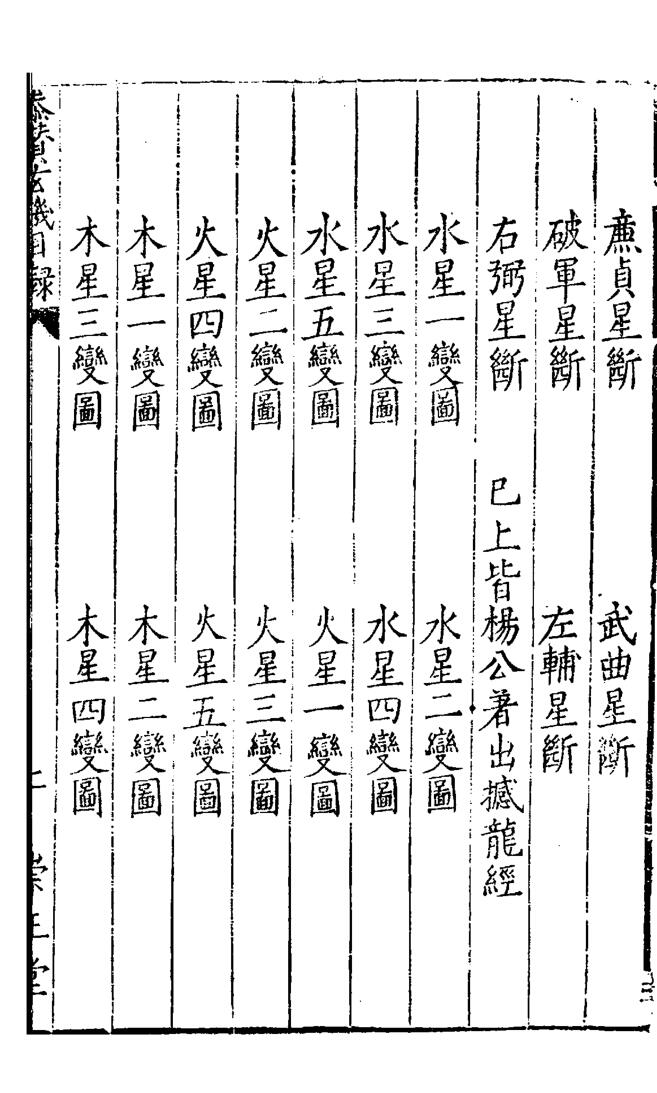 廉貞星斷　武曲星斷
破軍星斷　左輔星斷
右弼星斷　已上皆楊公著出撼龍經
水星一變圖　水星二變圖
水星三變圖　水星四變圖
水星五變圖　火星一變圖
火星二變圖　火星三變圖
火星四變圖　火星五變圖
木星一變圖　木星二變圖
木星三變圖　木星四變圖
參贊玄機目錄　崇正堂